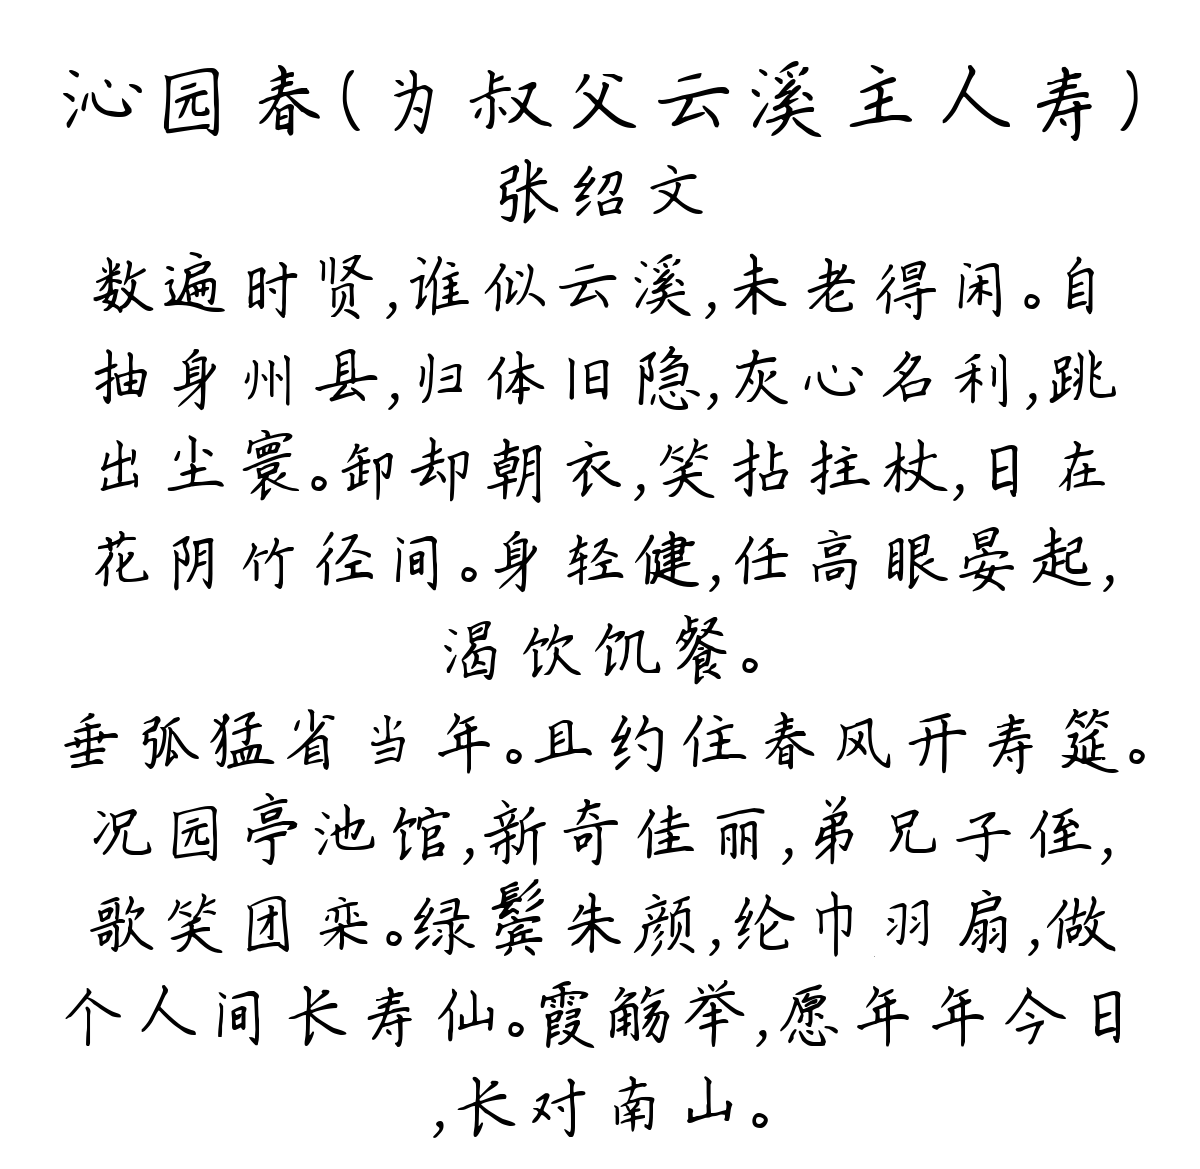 沁园春(为叔父云溪主人寿)
张绍文
数遍时贤,谁似云溪,未老得闲。自
抽身州县,归体旧隐,灰心名利,跳
出尘寰。卸却朝衣,笑拈拄杖,日在
花阴竹径间。身轻健,任高眠晏起,
渴饮饥餐。
垂弧猛省当年。且约住春风开寿筵。
况园亭池馆,新奇佳丽,弟兄子侄,
歌笑团栾。绿鬓朱颜,纶巾羽扇,做
个人间长寿仙。霞觞举,愿年年今日
,长对南山。